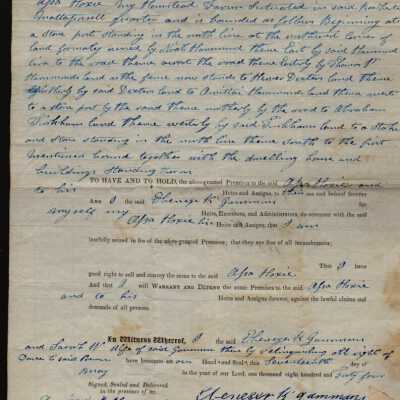 Asa Hoxie my Homestead Farm situated in said Rochester
Mattapoisett grantor and is bounded as follows Beginning at
a stone post standing in the north line at the northeast corner of
land formerly owned by Noah Hammond thence East by said Hammond
line to the road thence across the road thence Easterly by Thomas
Hammonds land as the fence now stands to Dexters land thence
Northerly by said Dexters land to Hammonds land thence west
to a stone post by the road thence northerly by the road to Abraham
Dinkham land thence westerly by said Dinkhams land to a Stake
and Stone standing in the north line thence south to the first
mentioned bound together with the dwelling house and
buildings standing
TO HAVE AND TO HOLD, the above-granted Premises to the said Asa Hoxie and
to his Heirs and Assigns, to their use and behoof forever
And I the said Ebenezer K Gammons for
myself my Heirs, Executors, and Administrators, do covenant with the said
Asa Hoxie his Heirs and Assigns, that I am
lawfully seized in fee of the above-granted Premises; that they are free of all incumbrances;
That I have
good right to sell and convey the same to the said Asa Hoxie
And that I will WARRANT AND DEFEND the same Premises to the said Asa Hoxie
and to his Heirs and Assigns forever, against the lawful claims and
demands of all persons.
In Witness Whereof, I the said Ebenezer K Gammons
and Sarah W wife of said Gammons relinquishing all right of
Dower to said Premises have hereunto set our Hand and Seal this Seventeenth day of
May in the year of our Lord, one thousand eight hundred and fifty four
Signed, Sealed and Delivered
in the presence of us.
Ebenezer K gammons